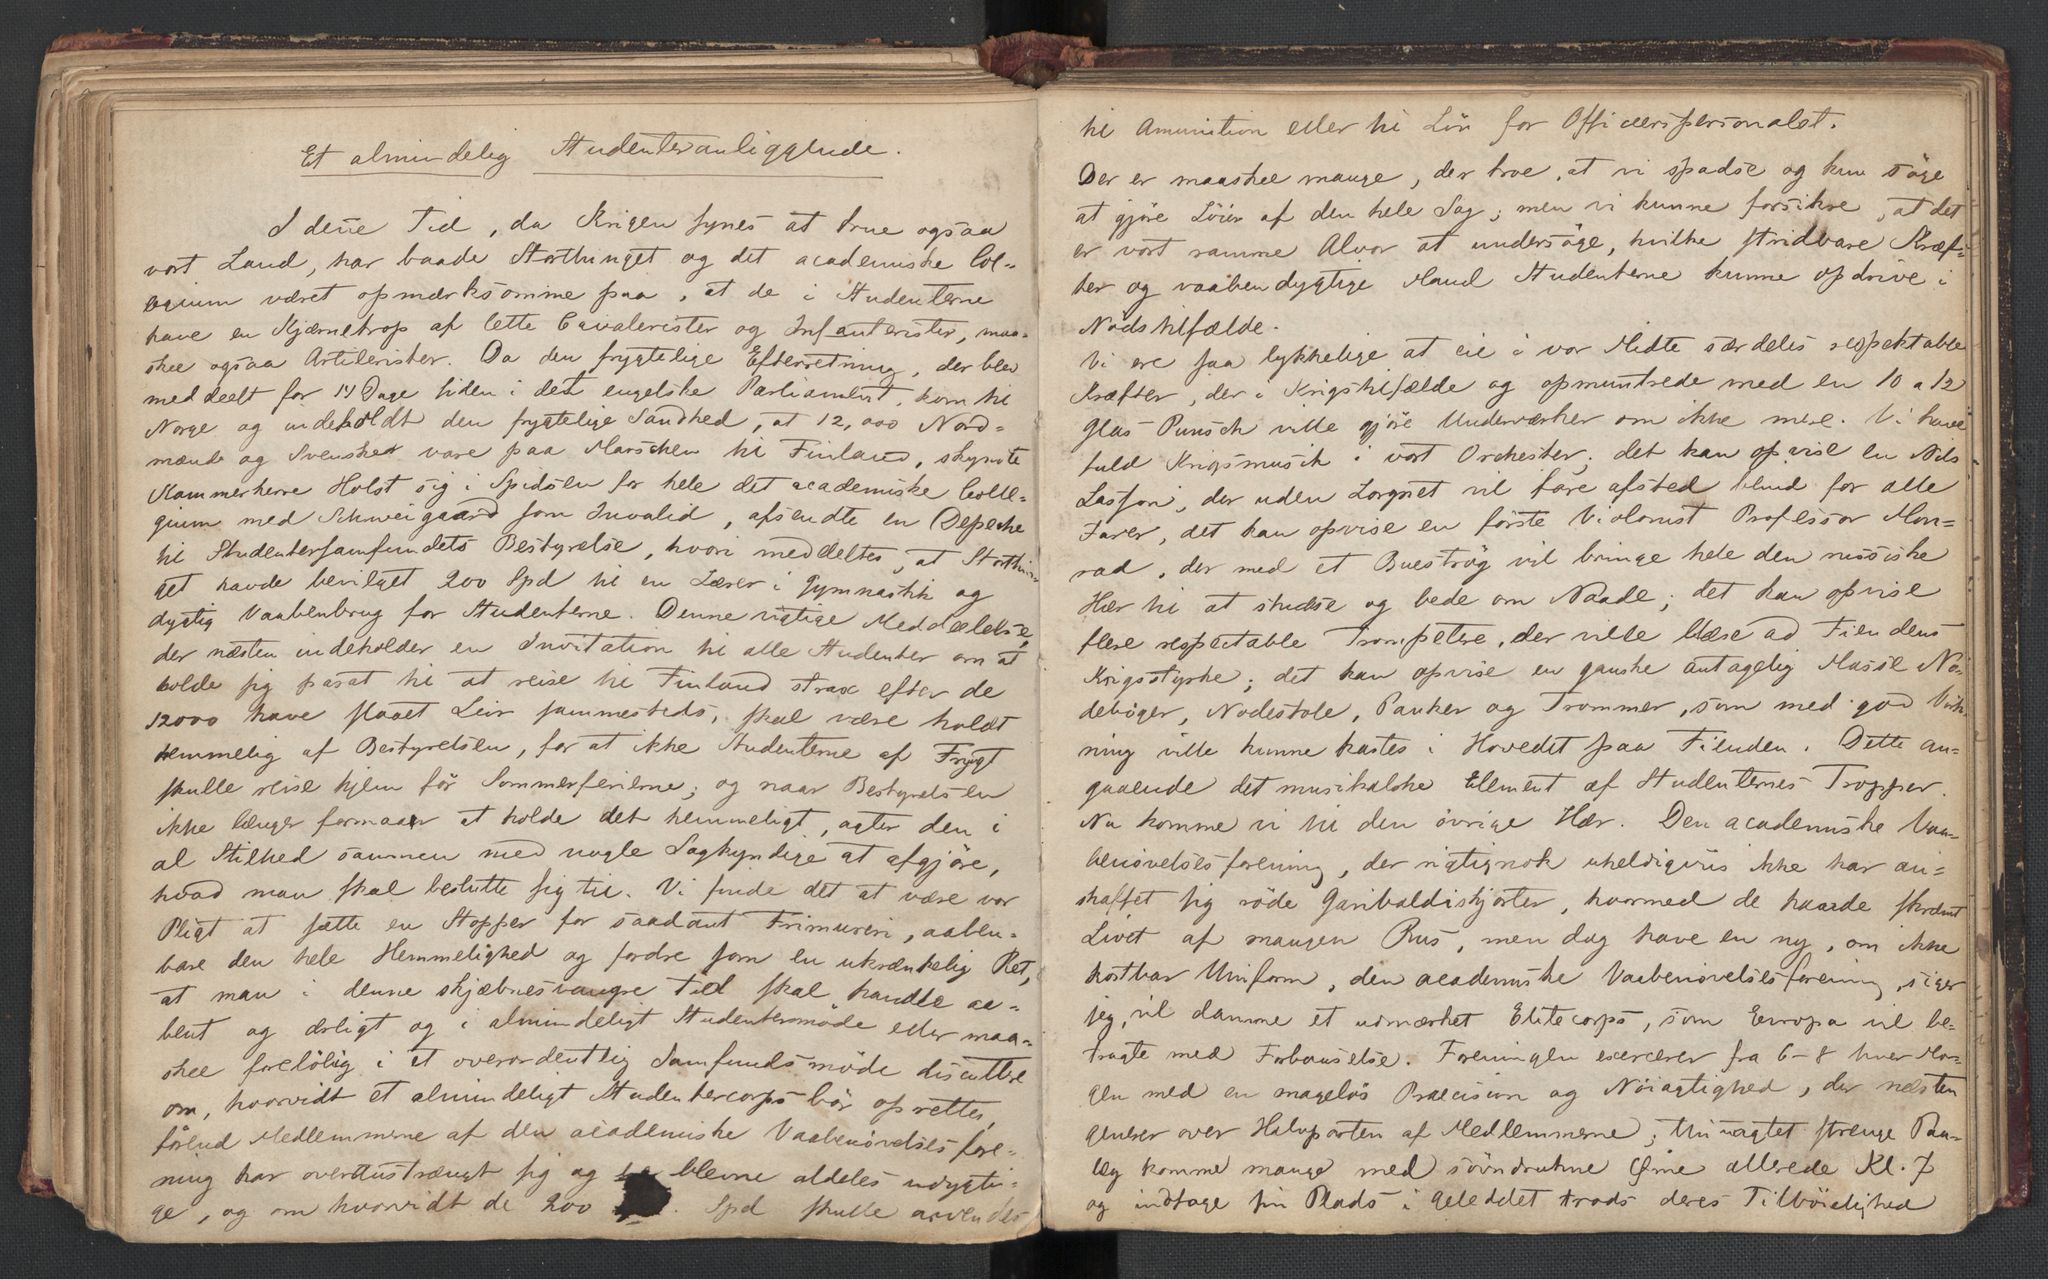 Et almindelig Studenteranliggende.
I denne Tid, da Krigen synes at true ogsaa
vort Land, har baade Storthinget og det academiske Col-
legium været opmærksomme paa, at de i Studenterne
have en Kjærnetrop af lette Cavalerister og Infanterister, maa-
skee ogsaa Artilerister. Da den frygtelige Efterretning, der blev
meddeelt for 14 Dage siden i det engelske Parliament, kom til
Norge og indeholdt den frygtelige Sandhed, at 12,000 Nord-
mænd og Svensker vare paa Marschen til Finland, skyndte
Kammerherre Holst sig i Spidsen for hele det academiske Colle-
gium med Schweigaard som Invalid, afsendte en Depeche
til Studentersamfundets Bestyrelse, hvori meddeltes, at Storthin-
get havde bevilget 200 Spd til en Lærer i Gymnastik og
dygtig Vaabenbrug for Studenterne. Denne vigtige Meddelelse,
der næsten indeholder en Invitation til alle Studenter om at
holde sig parat til at reise til Finland strax efter de
12000 have slaaet Leir sammesteds, skal være holdt
hemmelig af Bestyrelsen, for at ikke Studenterne af Frygt
skulle reise hjem før Sommerferierne; og naar Bestyrelsen
ikke længer formaaer at holde det hemmeligt, agter den i
al Stilhed sammen med nogle Sagkyndige at afgjøre,
hvad man skal beslutte sig til. Vi finde det at være vor
Pligt at sætte en Stopper for saadant Frimureri, aaben-
bare den hele Hemmelighed og fordre som en ukrænkelig Ret,
at man i denne skjæbnesvangre Tid skal handle aa-
bent og ærligt og i almindeligt Studentermøde eller maa-
skee foreløbig i et overordentlig Samfundsmøde discuttere
om, hvorvidt et almindeligt Studentercorps bør oprettes,
førend Medlemmerne af den academiske Vaabenøvelsesfore-
ning har overanstrængt sig og blevne aldeles udygti-
ge, og om hvorvidt de 200 Spd skulle anvendes
til Amunition eller til Løn for Officeerspersonalet.
Der er maaskee mange, der troe, at vi spadse og kun søge
at gjøre Løier af den hele Sag; men vi kunne forsikre, at det
er vort ramme Alvor at undersøge, hvilke stridbare Kræf-
ter og vaabendygtige Mænd Studenterne kunne opdrive i
Nødstilfælde.
Vi ere saa lykkelige at eie i vor Midte særdeles respektable
Kræfter, der i Krigstilfælde og opmuntrede med en 10 a 12
Glas Punsch ville gjøre Underværker om ikke mere. Vi have
fuld Krigsmusik i vort Orchester; det kan opvise en Nils
Lasson, der uden Lorgnet vil fare afsted blind for alle
Farer, det kan opvise en første Violinist Professor Mon-
rad, der med et Buestrøg vil bringe hele den russiske
Hær til at studse og bede om Naade; det kan opvise
flere respectable Trompetere, der ville blæse ad Fiendens
Krigsstyrke; det kan opvise en ganske antagelig Masse No-
debøger, Nodestole, Pauker og Trommer, som med god Virk-
ning ville kunne kastes i Hovedet paa Fienden. Dette an-
gaaende det musikalske Element af Studenternes Tropper.
Nu komme vi til den øvrige Hær. Den academiske Vaa-
benøvelsesforening, der rigtignok uheldigviis ikke har an-
skaffet sig røde Garibaldiskjorter, hvormed de havde skræmt
Livet af mangen Rus, men dog have en ny, om ikke
kostbar Uniform, den academiske Vaabenøvelsesforening, siger
jeg, vil danne et udmærket Elitecorps, som Europa vil be-
tragte med Forbauselse. Foreningen exercerer fra 6-8 hver Mor-
gen med en mageløs Præcision og Nøiagtighed, der næsten
gruer over Halvparten af Medlemmerne; Uanagtet strenge Paa-
læg komme mange med søvndrukne Øine allerede Kl. 7
og indtage sin Plads i Geleddet trods deres Tilbøielighed